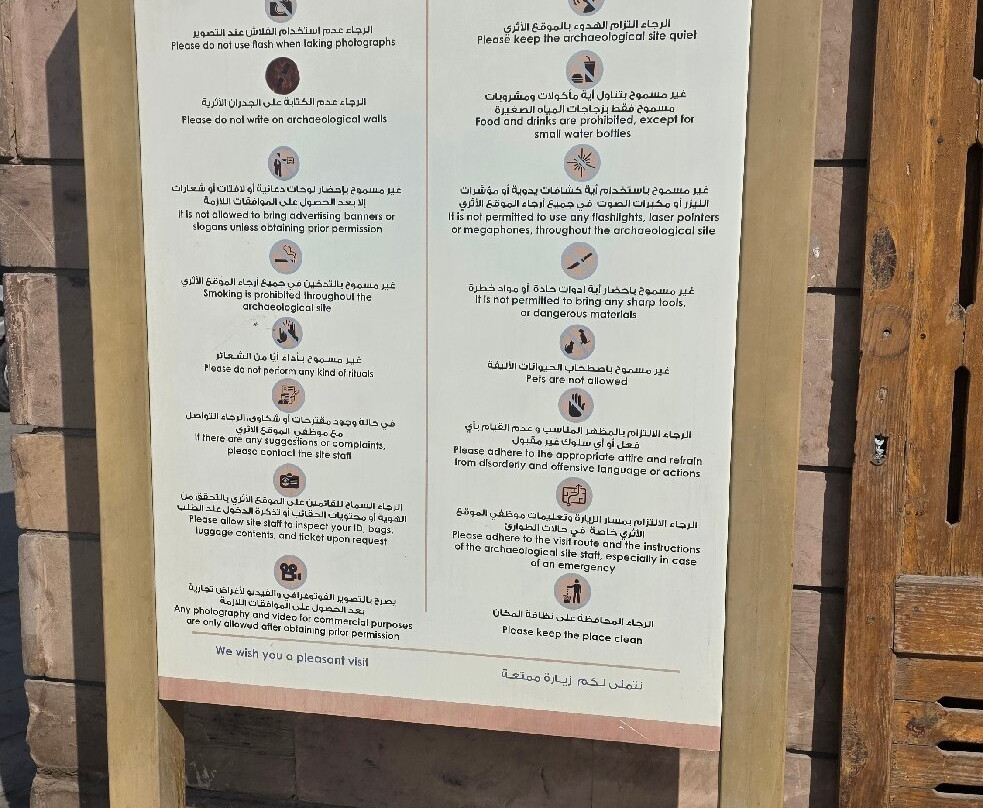 الرجاء عدم استخدام الفلاش عند التصوير
Please do not use flash when taking photographs
الرجاء عدم الكتابة على الجدران الأثرية
Please do not write on archaeological walls
غير مسموح بإحضار لوحات دعائية أو لافتات أو شعارات
إلا بعد الحصول على الموافقات اللازمة
It is not allowed to bring advertising banners or
slogans unless obtaining prior permission
غير مسموح بالتدخين في جميع أرجاء الموقع الأثري
Smoking is prohibited throughout the
archaeological site
غير مسموح بأداء أيًا من الشعائر
Please do not perform any kind of rituals
في حالة وجود مقترحات أو شكاوى، الرجاء التواصل
مع موظفي الموقع الأثري
If there are any suggestions or complaints,
please contact the site staff
الرجاء السماح للقائمين على الموقع الأثري بالتحقق من
الهوية أو محتويات الحقائب أو تذكرة الدخول عند الطلب
Please allow site staff to inspect your ID, bags,
luggage contents, and ticket upon request
يصرح بالتصوير الفوتوغرافي والفيديو لأغراض تجارية
بعد الحصول على الموافقات اللازمة
Any photography and video for commercial purposes
are only allowed after obtaining prior permission
We wish you a pleasant visit
الرجاء التزام الهدوء بالموقع الأثري
Please keep the archaeological site quiet
غير مسموح بتناول أية مأكولات ومشروبات
مسموح فقط بزجاجات المياه الصغيرة
Food and drinks are prohibited, except for
small water bottles
غير مسموح باستخدام أية كشافات يدوية أو مؤشرات
الليزر أو مكبرات الصوت في جميع أرجاء الموقع الأثري
It is not permitted to use any flashlights, laser pointers
or megaphones, throughout the archaeological site
غير مسموح بإحضار أية ادوات حادة أو مواد خطرة
It is not permitted to bring any sharp tools,
or dangerous materials
غير مسموح باصطحاب الحيوانات الأليفة
Pets are not allowed
الرجاء الالتزام بالمظهر المناسب و عدم القيام بأي
فعل أو أي سلوك غير مقبول
Please adhere to the appropriate attire and refrain
from disorderly and offensive language or actions
الرجاء الالتزام بمسار الزيارة وتعليمات موظفي الموقع
الأثري خاصة في حالات الطوارئ
Please adhere to the visit route and the instructions
of the archaeological site staff, especially in case
of an emergency
الرجاء المحافظة على نظافة المكان
Please keep the place clean
نتمنى لكم زيارة ممتعة